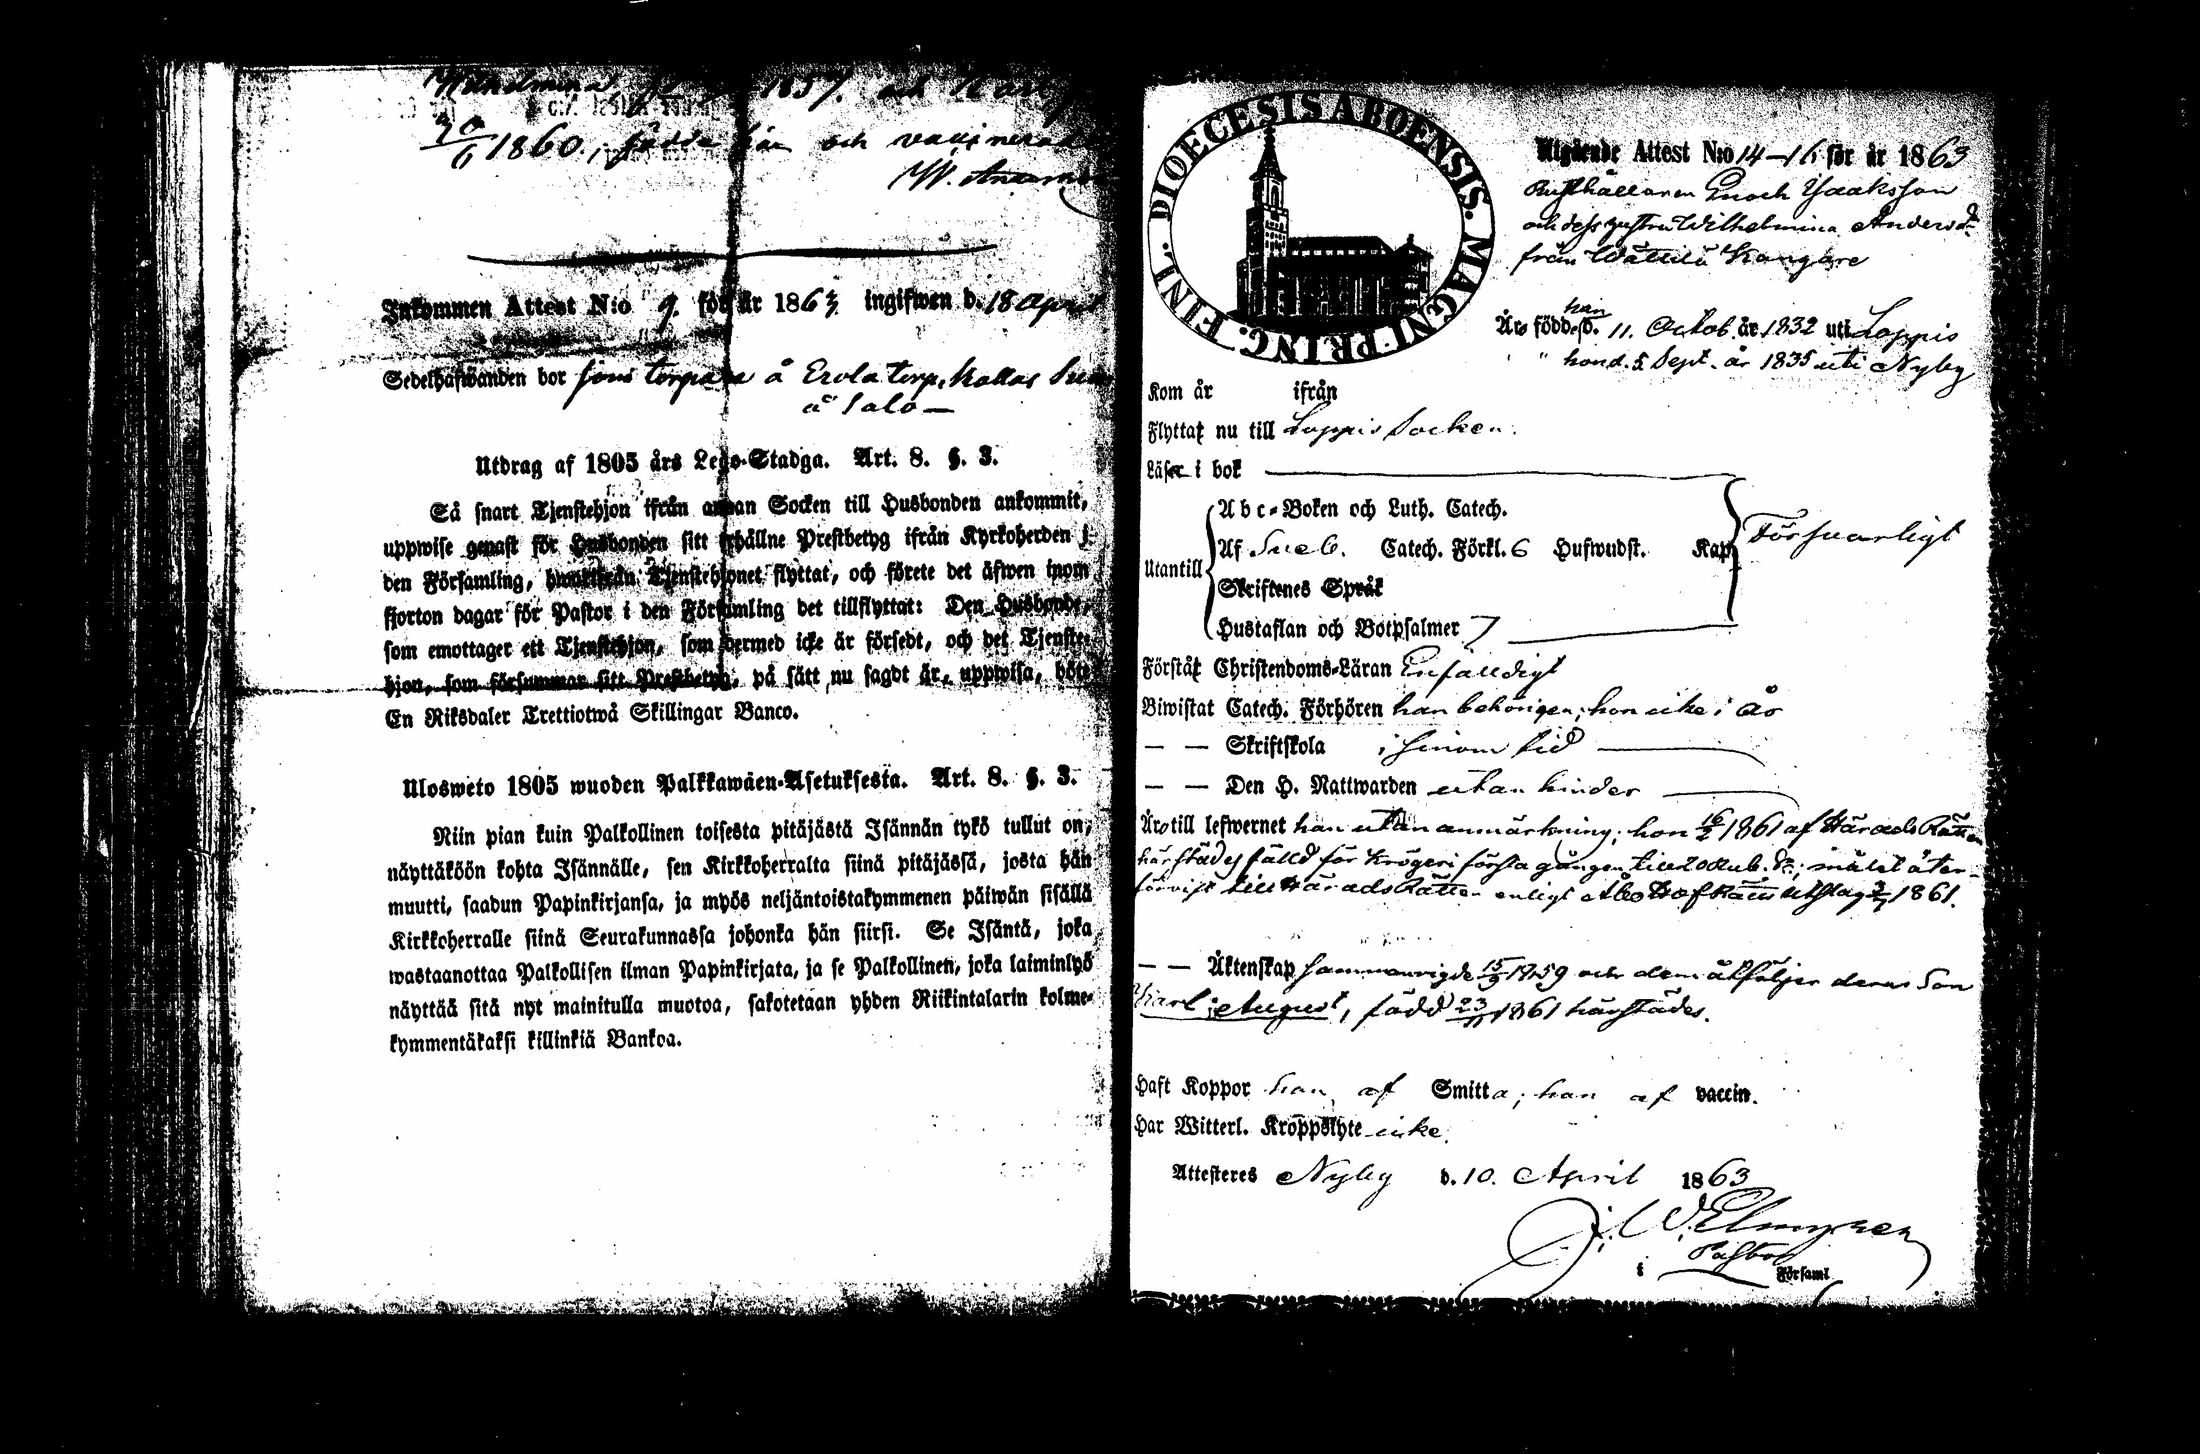 Wilhelmina, 1857. och Karl
20/6 1860, födda här och vaccinerade
W. 
Inkommen Attest N:o 9. för år 1863 ingifwen d. 18 April
Sedelhafwanden bor som torpare å Erola torp, Kallas
å Salo —
Utdrag af 1805 års Lego-Stadga. Art. 8. §. 3.
Så snart Tjenstehjon ifrån annan Socken till Husbonden ankommit,
uppwise genast för Husbonden sitt erhållne Prestbetyg ifrån Kyrkoherden i
den Församling, hwarifrån Tjenstehjonet flyttat, och förete det äfwen inom
fjorton dagar för Pastor i den Församling det tillflyttat: Den Husbonde,
som emottager ett Tjenstehjon, som dermed icke är försedt, och det Tjenste-
hjon, som försummar sitt Prestbetyg, på sätt nu sagdt är, uppwisa, böte
En Riksdaler Trettiotwå Skillingar Banco.
Ulosweto 1805 wuoden Palkkawäen-Asetuksesta. Art. 8. §. 3.
Niin pian kuin Palkollinen toisesta pitäjästä Isännän tykö tullut on,
näyttäköön kohta Isännälle, sen Kirkkoherralta siinä pitäjässä, josta hän
muutti, saadun Papinkirjansa, ja myös neljäntoistakymmenen päiwän sisällä
Kirkkoherralle siinä Seurakunnassa johonka hän siirsi. Se Isäntä, joka
wastaanottaa Palkollisen ilman Papinkirjata, ja se Palkollinen, joka laiminlyö
näyttää sitä nyt mainitulla muotoa, sakotetaan yhden Riikintalarin kolme-
kymmentäkaksi killinkiä Bankoa.
DIOECESIS ABOENSIS. MAGNI PRINC. FINL.
Utgående Attest N:o 14–16 för år 1863
Rusthållaren Enoch Isaksson
och dess hustru Wilhelmina Andersd:r
från Wättilä Kangare
Äro födde han d. 11. Octob. år 1832 uti Loppis
" hon d. 5 Sept. år 1835 uti Nyby
Kom år ifrån
Flyttat nu till Loppis Socken.
Läser i bok
Utantill
Abc-Boken och Luth. Catech.
Af Sveb. Catech. Förkl. 6 Hufwudst. Kap.
Försvarligt
Skriftenes Språk
Hustaflan och Botpsalmer 7
Förstår Christendoms-Läran Enfalldigt
Biwistat Catech. Förhören han behörigen, hon icke i år
— — Skriftskola i sinom tid
— — Den H. Nattwarden utan hinder
Äro till lefwernet han utan anmärkning; hon 16/2 1861 af HäradsRätten
härstädes fälld för krögeri första gången till 20 Rub. Sr; målet åter-
förvist till HäradsRätten enligt Åbo HofRätts utslag 1861.
— — Äktenskap sammanvigde 15/9 1859 och dem åtföljer deras Son
Karl August, född 23/11 1861 härstädes.
Haft Koppor hon af Smitta; han af vaccin.
Har Witterl. Kroppslyte icke.
Attesteres Nyby d. 10. April 1863
J. W. Elmgren
Pastor
i Församl